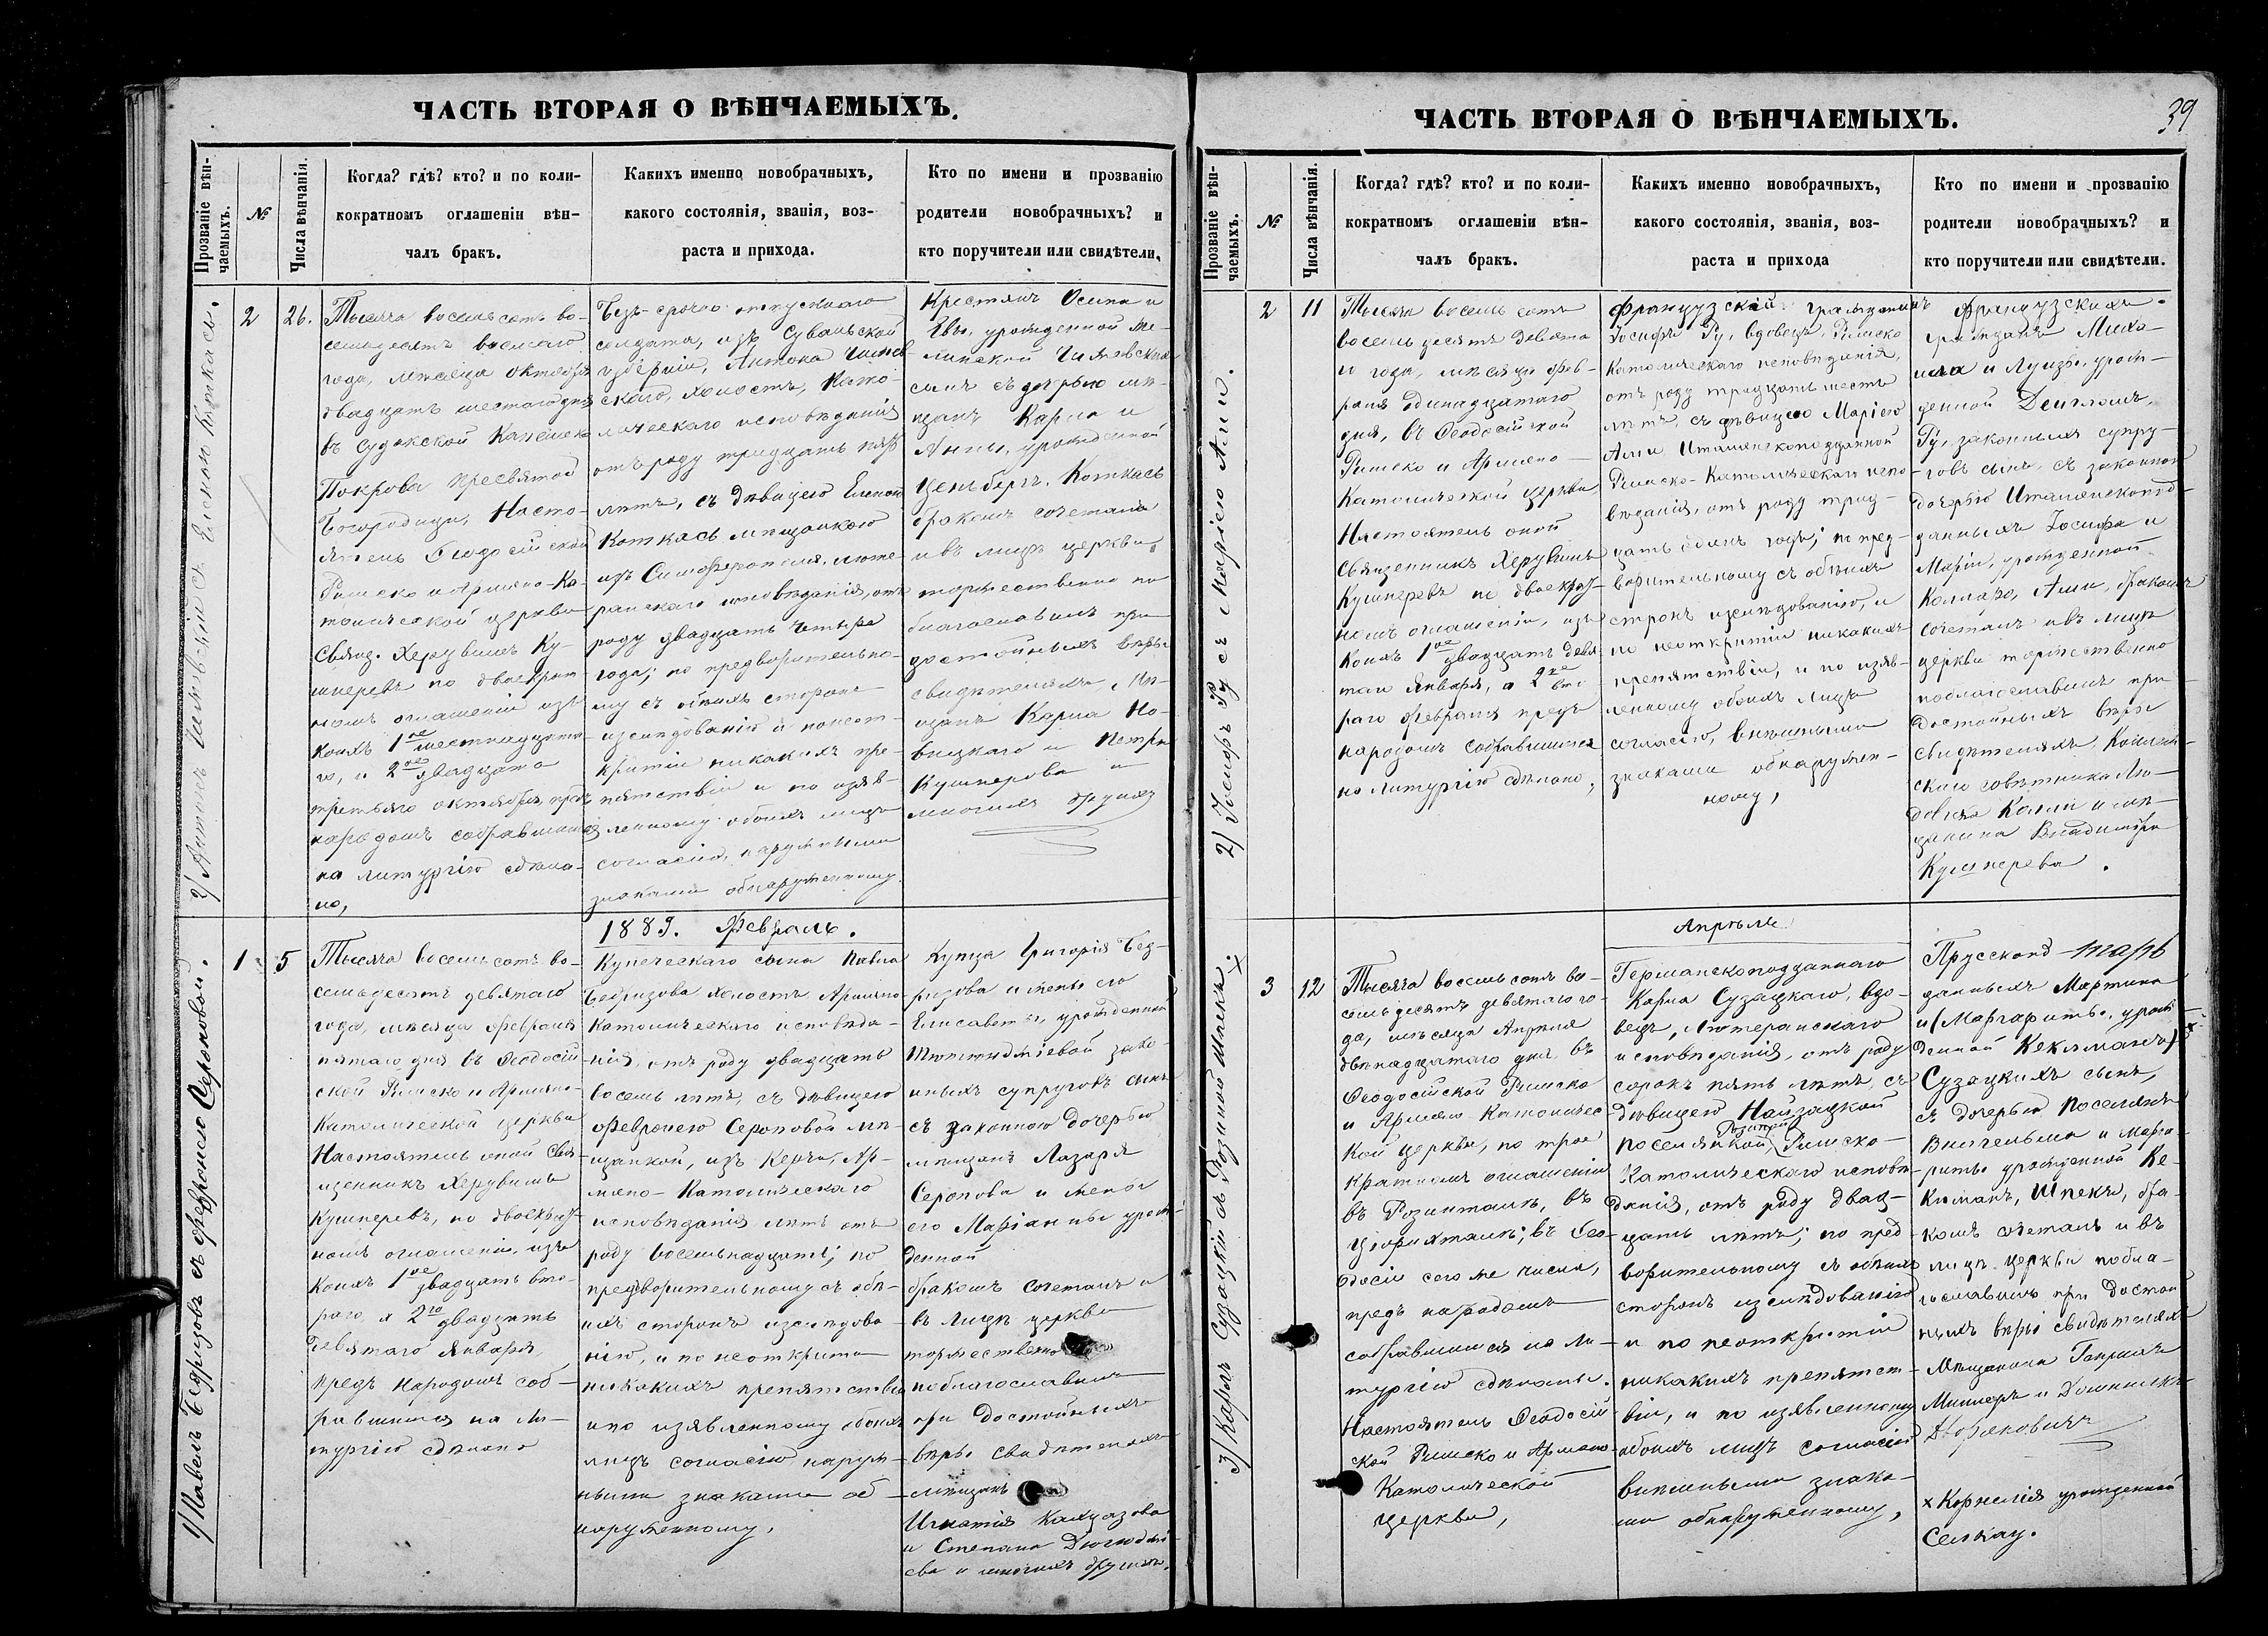 ЧАСТЬ ВТОРАЯ О ВѢНЧАЕМЫХЪ.
Прозваніе вѣн-
чаемыхъ.
№
Числа вѣнчанія.
Когда? гдѣ? кто? и по коли-
кократномъ оглашеніи вѣн-
чалъ бракъ.
Какихъ именно новобрачныхъ,
какого состоянія, званія, воз-
раста и прихода.
Кто по имени и прозванію
родители новобрачныхъ? и
кто поручители или свидѣтели,
2/ Антонъ съ Еленою Коткась.
2
26.
Тысяча восемьсотъ во-
семьдесятъ восьмаго
года, мѣсяца октября
двадцать шестаго дня
въ Судакской
Покрова Пресвятой
Богородицы, Насто-
ятель Ѳеодосійской
Римско и Армяно-Ка-
толической церкви
Свящ. Херувимъ Ку-
шнеревъ по двоекрат-
номъ оглашеніи изъ
коихъ 1ое шестнадцата-
го, и 2ое двадцать
третьяго октября, предъ
народомъ собравшимся
на литургію сдѣла-
но,
Безъ-срочно отпускнаго
солдата, изъ Сувалкской
губерніи, Антона
холостъ, Като-
лическаго исповѣданія
отъ роду тридцать пять
лѣтъ, съ дѣвицею Еленою
Коткась мѣщанкою
изъ Симферополя, люте-
ранскаго исповѣданія, отъ
роду двадцать четыре
года; по предворительно-
му съ обѣихъ сторонъ
изслѣдованію и по неот-
крытіи никакихъ пре-
пятствій и по изъяв-
ленному обоихъ лицъ
согласію, наружными
знаками обнаруженному.
Крестьянъ Осипа и
Евы, урожденной
сынъ съ дочерью мѣ-
щанъ Карла и
Анны, урожденной
Ценьбергъ, Коткась
бракомъ сочетаны
и въ лицѣ церкви
торжественно по
благословилъ при
достойныхъ вѣры
свидѣтеляхъ, Мѣ-
щанъ Карла Но-
вицкаго и Петра
Кушнерова и
многихъ другихъ
1889. Февраль.
1/ Павелъ Бедризовъ съ Февроніею Сероповой.
1
5
Тысяча восемьсотъ во-
семьдесятъ девятаго
года, мѣсяца февраля
пятаго дня, въ Ѳеодосій-
ской Римско и Армяно-
Католической церкви
Настоятель оной Свя-
щенникъ Херувимъ
Кушнеревъ, по двоекрат-
номъ оглашеніи, изъ
коихъ 1ое двадцать вто-
раго, и 2го двадцать
девятаго Января,
предъ народомъ соб-
равшимся на ли-
тургію сдѣлано
Купеческаго сына Павла
Бедризова холостъ Армяно-
Католическаго исповѣда-
нія, отъ роду двадцать
восемь лѣтъ, съ дѣвицею
Февроніею Сероповой мѣ-
щанкой, изъ Керчи, Ар-
мяно-Католическаго
исповѣданія лѣтъ отъ
роду восемьнадцать; по
предворительному съ обѣ-
ихъ сторонъ изслѣдова-
нію, и по неоткрытіи
никакихъ препятствій
и по изъявленному обоихъ
лицъ согласію наруж-
ными знаками об-
наруженному,
Купца Григорія Бед-
ризова и жены его
Елисаветы, урожденной
зако-
нныхъ супруговъ сынъ
съ законною дочерью
мѣщанъ Лазаря
Серопова и жены
его Маріанны урож-
денной
бракомъ сочеталъ и
въ лицѣ церкви
торжественно
поблагословилъ
при достойныхъ
вѣры свидѣтеляхъ
мѣщанъ
Игнатія
и Степана
и многихъ другихъ.
39
ЧАСТЬ ВТОРАЯ О ВѢНЧАЕМЫХЪ.
Прозваніе вѣн-
чаемыхъ.
№
Числа вѣнчанія.
Когда? гдѣ? кто? и по коли-
кократномъ оглашеніи вѣн-
чалъ бракъ.
Какихъ именно новобрачныхъ,
какого состоянія, званія, воз-
раста и прихода
Кто по имени и прозванію
родители новобрачныхъ? и
кто поручители или свидѣтели.
2/ Іосифъ Ру съ Маріею Али.
2
11
Тысяча восемь сотъ
восемьдесятъ девята-
го года, мѣсяца фев-
раля одинадцатаго
дня, въ Ѳеодосійской
Римско и Армяно-
Католической церкви
Настоятель оной
Священникъ Херувимъ
Кушнеревъ по двоекрат-
номъ оглашеніи, изъ
коихъ 1ое двадцать девя-
таго Января, а 2ое вто-
раго февраля предъ
народомъ собравшимся
на литургію сдѣлано,
Французскій гражданинъ
Іосифъ Ру, вдовецъ, Римско
Католическаго исповѣданія,
отъ роду тридцать шесть
лѣтъ, съ дѣвицею Маріею
Али Итальянскоподданной
Римско-Католическаго испо-
вѣданія, отъ роду трид-
цать одинъ годъ; по пред-
ворительному съ обѣихъ
сторонъ изслѣдованію, и
по неоткрытіи никакихъ
препятствій, и по изъяв-
ленному обоихъ лицъ
согласію, внѣшными
знаками обнаружен-
ному,
Французскихъ
гражданъ Миха-
ила и Луизы, урож-
денной
Ру, законныхъ супру-
говъ сынъ, съ законной
дочерью Итальянскопод-
данныхъ Іосифа и
Маріи, урожденной
Али, бракомъ
сочеталъ и въ лицѣ
церкви торжественно
поблагословилъ при
достойныхъ вѣры
свидѣтеляхъ,
совѣтника Лю-
двика и мѣ-
щанина Владиміра
Кушнерева.
Апрѣль
3/ Карлъ Сузацкій съ Розиной Шпекъ. ×
3
12
Тысяча восемьсотъ во-
семьдесятъ девятаго го-
да, мѣсяца Апрѣля
двѣнадцатаго дня въ
Ѳеодосійской Римско
и Армяно Католичес-
кой церкви, по трое
кратномъ оглашеніи
въ Розинталь, въ
Цюрихталь; въ Ѳео-
досіи сего же числа,
предъ народомъ
собравшимся на ли-
тургію сдѣланы.
Настоятель Ѳеодосій-
ской Римско и Армяно
Католической
церкви,
Германскоподданнаго
Карла Сузацкаго, вдо-
вецъ, Лютеранскаго
исповѣданія, отъ роду
сорокъ пять лѣтъ, съ
дѣвицею Найзацкой
Розиной
поселянкой, Римско-
Католическаго исповѣ-
данія, отъ роду двад-
цать лѣтъ; по пред
ворительному съ обѣихъ
сторонъ изслѣдованію
и по неоткрытіи
никакихъ препятст-
вій, и по изъявленному
обоихъ лицъ согласію
внѣшными знака-
ми обнаруженному,
Прусскопод
данныхъ Мартина
и (Маргариты, урож-
денной Кекльманъ) ×
Сузацкихъ сынъ,
съ дочерью Поселянъ
Вильгельма и Марга-
риты урожденной Ке-
кіманъ, Шпекъ, бра-
комъ сочеталъ и въ
лицѣ церкви побла-
гословилъ при достой
ныхъ вѣры свидѣтеляхъ
Мѣщанина Генриха
Миллеръ и Доминика
× Корнеліи урожденной